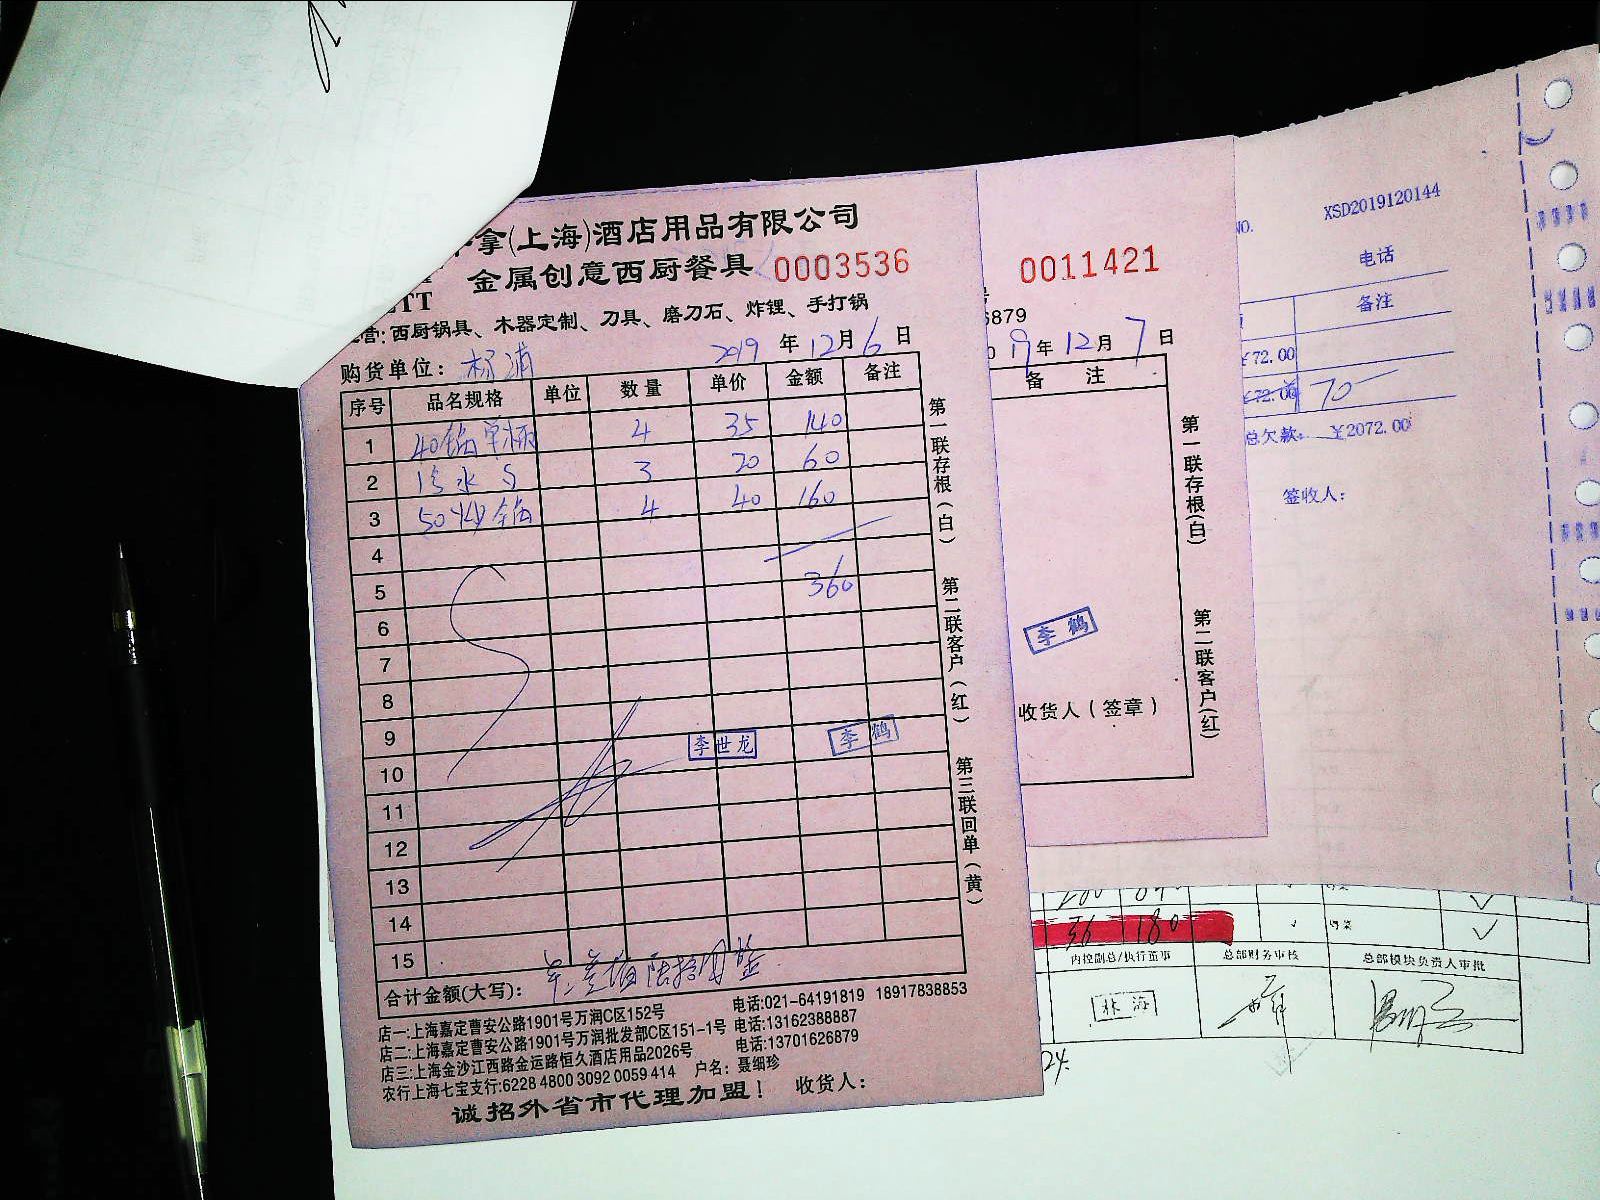 拿(上海)酒店用品有限公司
金属创意西厨餐具 0003536
ETT
营:西厨锅具、木器定制、刀具、磨刀石、炸锂、手打锅
购货单位: 杨浦 2019 年 12 月 6 日
序号 品名规格 单位 数量 单价 金额 备注
1 40锅单柄 4 35 140
2 冷水 S 3 20 60
3 50炒锅 4 40 160
4
5 360
6
7
8
9 李世龙 李鹤
10
11
12
13
14
15
合计金额(大写):
店一:上海嘉定曹安公路1901号万润C区152号 电话:021-64191819 18917838853
店二:上海嘉定曹安公路1901号万润批发部C区151-1号 电话:13162388887
店三:上海金沙江西路金运路恒久酒店用品2026号 电话:13701626879
农行上海七宝支行:6228 4800 3092 0059 414 户名: 聂细珍
诚招外省市代理加盟! 收货人:
第一联存根(白) 第二联客户(红) 第三联回单(黄)
0011421
号
6879
0 19 年 12 月 7 日
备 注
李鹤
收货人(签章)
第一联存根(白) 第二联客户(红)
NO. XSD2019120144
电话
备注
¥72.00
¥72.00 70
总欠款: ¥2072.00
签收人:
36 180
内控副总/执行董事 总部财务审核 总部模块负责人审批
林海
24.